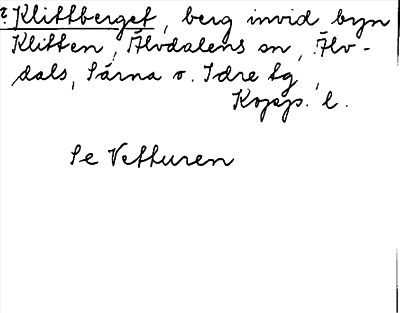 ? Klittberget, berg invid byn
Klitten, Älvdalens sn, Älv-
dals, Särna o. Idre tg,
Kopp. l.
Se Vetturen